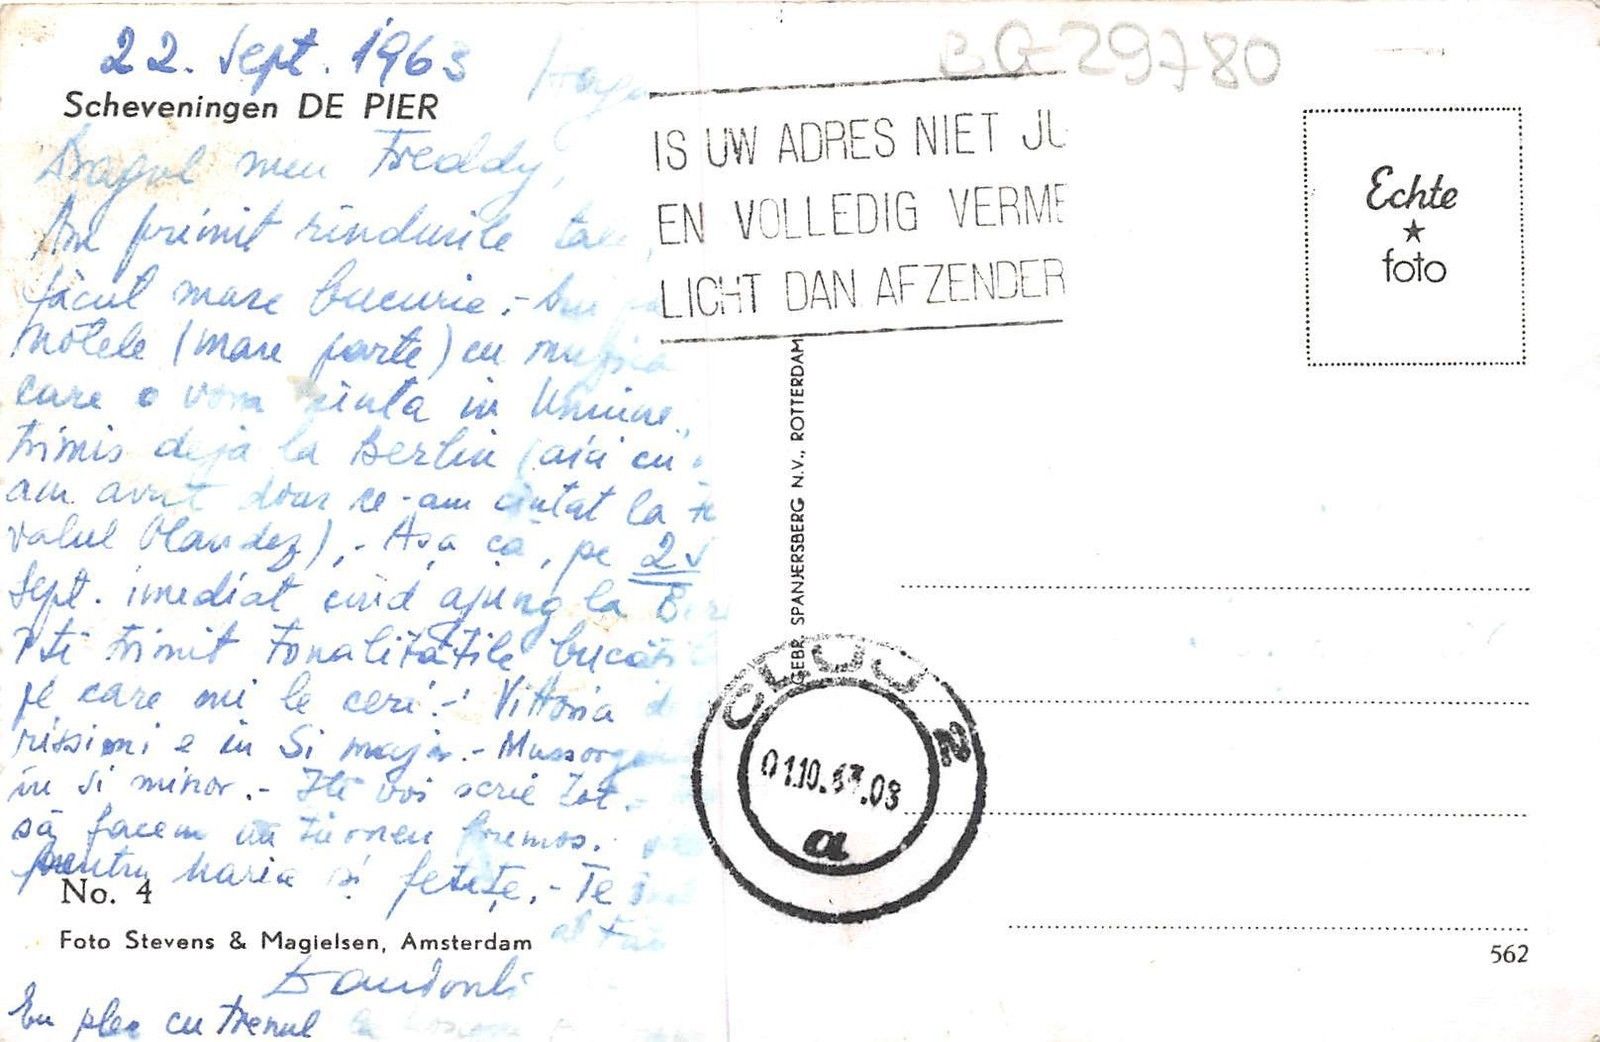 22. Sept. 1963
BG-29780
Scheveningen DE PIER
Dragul meu Freddy,
Am primit rîndurile tale,
făcut mare bucurie.- Am
Notele (mare parte) cu muzica
care o vom cînta in
trimis deja la Berlin (aici cu
am avut doar ce-am cîntat la
valul Olandez),- Așa că, pe
Sept. imediat cînd ajung la
Iti trimit Tonalitățile
pe care mi le ceri.- Vittoria
rissimi e in Si major.- Mussorg
in si minor.- Iti voi scrie tot.-
să facem un turneu frumos.
pentru Maria și fetițe.- Te
al tău
Eu plec cu trenul
No. 4
Foto Stevens & Magielsen, Amsterdam
IS UW ADRES NIET JU
EN VOLLEDIG VERME
LICHT DAN AFZENDER
GEBR. SPANJERSBERG N.V., ROTTERDAM
CLUJ 2
01.10.63.08
a
Echte
foto
562